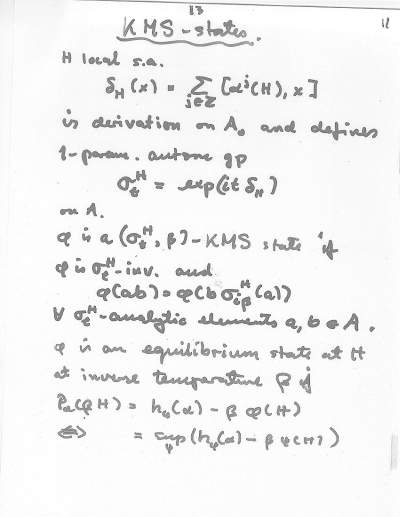 13
11
KMS-states.
H local s.a.
δ_H(x) = Σ_{j∈Z} [α^j(H), x]
is derivation on A₀ and defines
1-param. autom gp
σ_t^H = exp(it δ_H)
on A.
φ is a (σ_t^H, β)-KMS state if
φ is σ_t^H-inv. and
φ(ab) = φ(b σ_{iβ}^H(a))
∀ σ_t^H-analytic elements a, b ∈ A.
φ is an equilibrium state at H
at inverse temperature β if
P_α(βH) = h_φ(α) - β φ(H)
⇔ = sup_ψ (h_ψ(α) - β ψ(H))